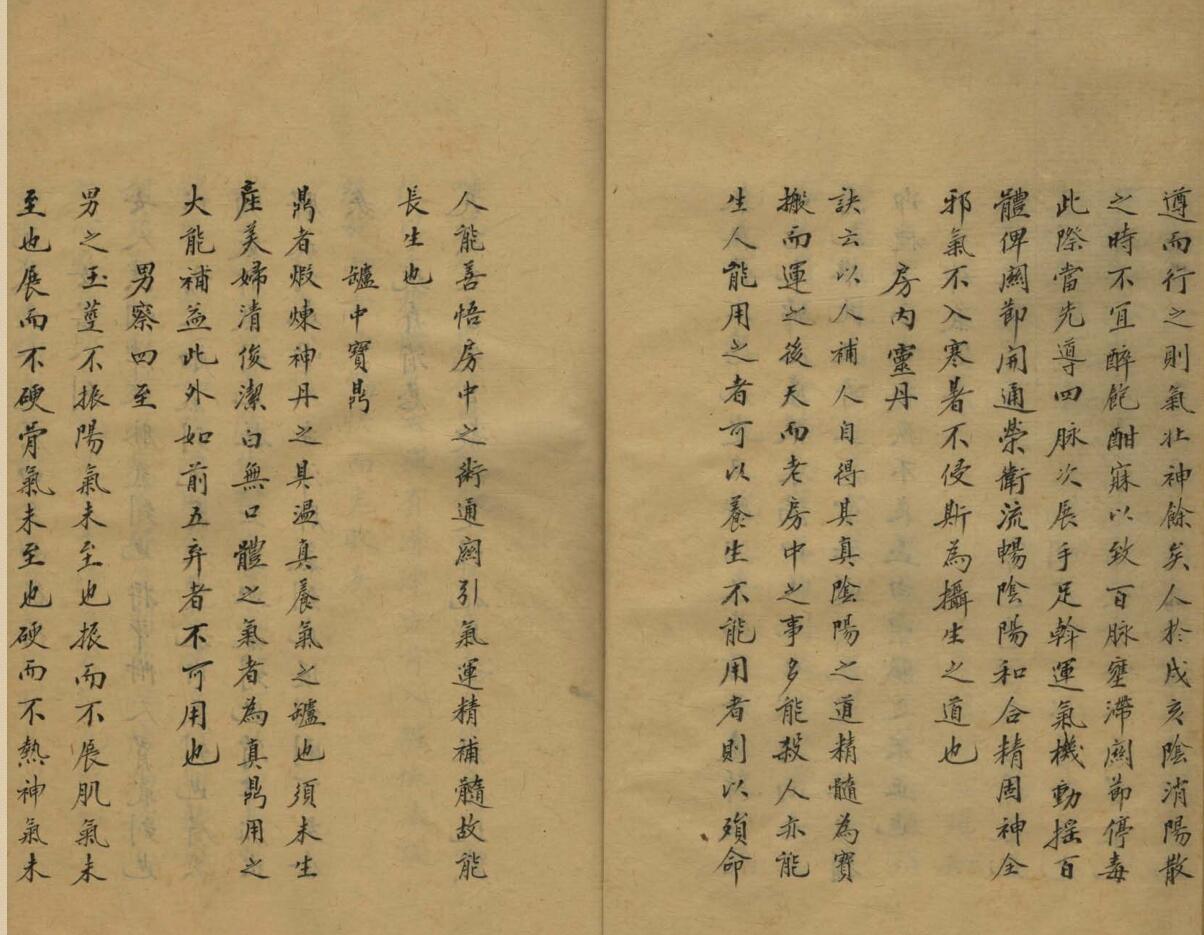 遵而行之則氣壯神餘矣人於戌亥陰消陽散
之時不宜醉飽酣寐以致百脉壅滯関節停毒
此際當先導四脉次展手足斡運氣機動搖百
體俾関節開通榮衛流暢陰陽和合精固神全
邪氣不入寒暑不侵斯為攝生之道也
房內靈丹
訣云以人補人自得其真陰陽之道精髓為寶
搬而運之後天而老房中之事多能殺人亦能
生人能用之者可以養生不能用者則以殞命
人能善悟房中之術通関引氣運精補髓故能
長生也
罏中寶鼎
鼎者煅煉神丹之具温真養氣之罏也須未生
產美婦清俊潔白無口體之氣者為真鼎用之
大能補益此外如前五弃者不可用也
男察四至
男之玉莖不振陽氣未至也振而不展肌氣未
至也展而不硬骨氣未至也硬而不熱神氣未